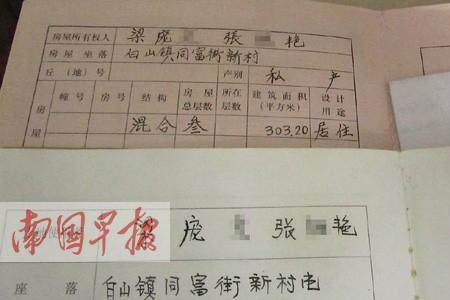 房屋所有权人 梁庞 張 艳
房屋座落 白山镇同富街新村
丘(地)号 产别 私产
房屋 幢号 房号 结构 房屋总层数 所在层数 建筑面积(平方米) 设计用途
混合 叁 303.20 居住
南国早报
梁庞 张 艳
座落 白山镇同富街新村屯